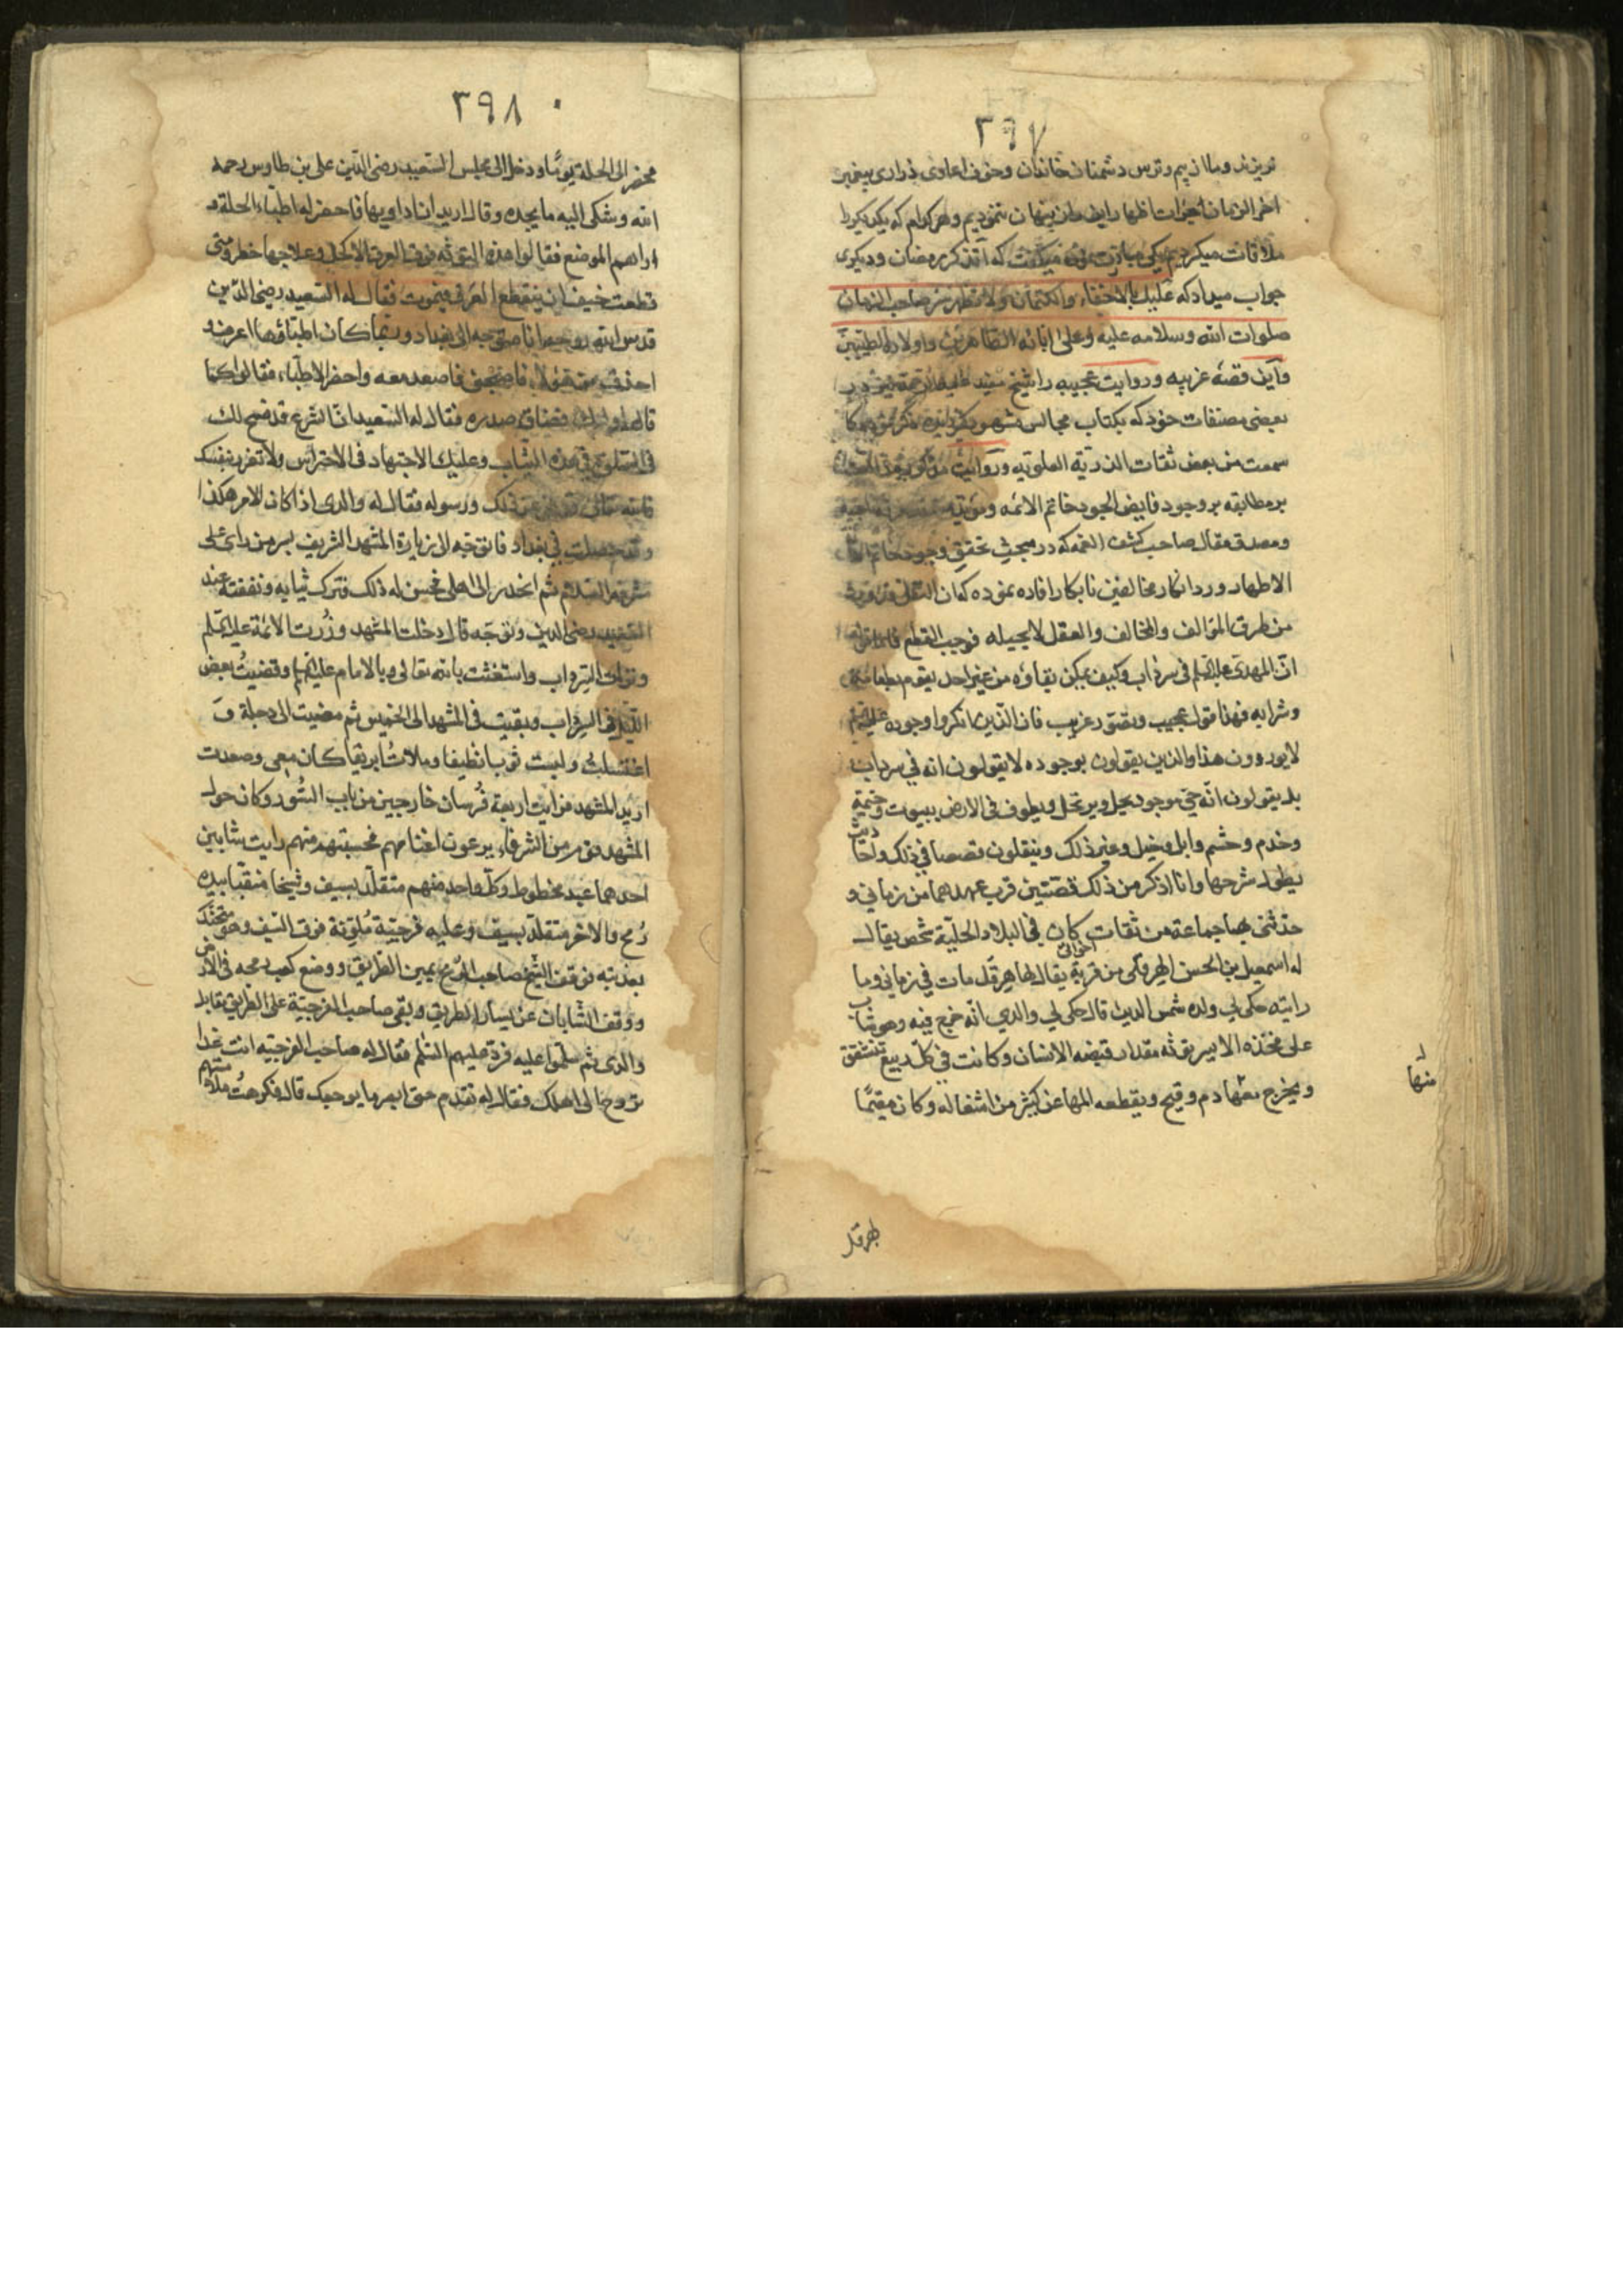 ٢٩٧
نریزند و ما از بیم و ترس دشمنان خاندان و خوف اعادی ذراری پیغمبر
اخر الزمان جرات اظهار این راز پنهان ننمودیم و هر کدام که یکدیکر را
ملاقات میکردیم یکی مبادرت نموده میکفت که اتذکر رمضان و دیکری
جواب میداد که علیک بالاخفاء والکتمان ولا تظهر سر صاحب الزمان
صلوات الله وسلامه علیه وعلی ابائه الطاهرین واولاده الطیبین
واین قصهٔ غریبه و روایت عجیبه را شیخ مفید علیه الرحمة نیز در
بعضی مصنفات خود که بکتاب مجالس مشهور
سمعت من بعض ثقات الذریة العلویه و روایت
بر مطابقه بر وجود فایض الجود خاتم الائمه
ومصدق مقال صاحب کشف الغمه که در مبحث تحقیق وجود خاتم
الاطهار و رد انکار مخالفین نابکار افاده نموده که ان النقل قد ورد به
من طرق المؤالف والمخالف والعقل لا یحیله فوجب القطع فاما قولهم
ان المهدی علیه السلم فی سرداب وکیف یمکن بقاؤه من غیر احد یقوم بطعامه
وشرابه فهذا قول عجیب وتصور غریب فان الذین انکروا وجوده علیه السلم
لا یوردون هذا والذین یقولون بوجوده لا یقولون انه فی سرداب
بل یقولون انه حی موجود یحل ویرتحل ویطوف فی الارض ببیوت وخیمة
وخدم وحشم وابل وخیل وغیر ذلک وینقلون قصصا فی ذلک واحادیث
یطول شرحها وانا اذکر من ذلک قصتین قرب عهدهما من زمانی و
حدثنی بهما جماعة من ثقات اخوانی کان فی البلاد الحلیة شخص یقال
له اسمعیل بن الحسن الهرقلی من قریة یقال لها هرقل مات فی زمانی وما
رایته حکی لی ولده شمس الدین قال حکی لی والدی انه خرج فیه وهو شاب
علی فخذه الایسر توثة مقدار قبضه الانسان وکانت فی کل ربیع تتشقق
ویخرج منها دم وقیح ویقطعه المها عن کثیر من اشغاله وکان مقیما
منها
بهرقل
٢٩٨
فحضر الی الحلة یوما ودخل الی مجلس السعید رضی الدین علی بن طاوس رحمه
الله وشکی الیه ما یجده وقال ارید ان اداویها فاحضر له اطباء الحلة و
اراهم الموضع فقالوا هذه التوثه فوق العرق الاکحل وعلاجها خطر ومتی
قطعت خیف ان ینقطع العرق فیموت فقال له السعید رضی الدین
قدس الله روحه انا متوجه الی بغداد وربما کان اطباؤها اعرف و
احذق من هؤلاء فاصحبنی فاصعد معه واحضر الاطباء فقالوا کما
قال اولئک فضاق صدره فقال له السعید ان الشرع قد فسح لک
فی الصلوة فی هذه الثیاب وعلیک الاجتهاد فی الاحتراس ولا تغرر بنفسک
فالله تعالی قد نهی عن ذلک ورسوله فقال له والدی اذا کان الامر هکذا
وقد حصلت فی بغداد فاتوجه الی زیارة المشهد الشریف بسر من رای علی
مشرفه السلام ثم انحدر الی اهلی فحسن له ذلک فترک ثیابه ونفقته عند
السعید رضی الدین وتوجه قال دخلت المشهد وزرت الائمة علیهم السلم
ونزلت السرداب واستغثت بالله تعالی وبالامام علیه السلم وقضیت بعض
اللیل فی السرداب وبقیت فی المشهد الی الخمیس ثم مضیت الی دجلة و
اغتسلت ولبست ثوبا نظیفا وملات ابریقا کان معی وصعدت
ارید المشهد فرایت اربعة فرسان خارجین من باب السور وکان حول
المشهد قوم من الشرفاء یرعون اغنامهم فحسبتهم منهم رایت شابین
احدهما عبد مخطوط وکل واحد منهم متقلد بسیف وشیخا منقبا بیده
رمح والاخر متقلد بسیف وعلیه فرجیة ملونة فوق السیف وهو متحنک
بعذبته فوقف الشیخ صاحب الرمح یمین الطریق ووضع کعب رمحه فی الارض
ووقف الشابان عن یسار الطریق وبقی صاحب الفرجیة علی الطریق مقابل
والدی ثم سلموا علیه فرد علیهم السلم فقال له صاحب الفرجیه انت غدا
تروح الی اهلک فقال له تقدم حتی ابصر ما یوجعک قال فکرهت ملامستهم